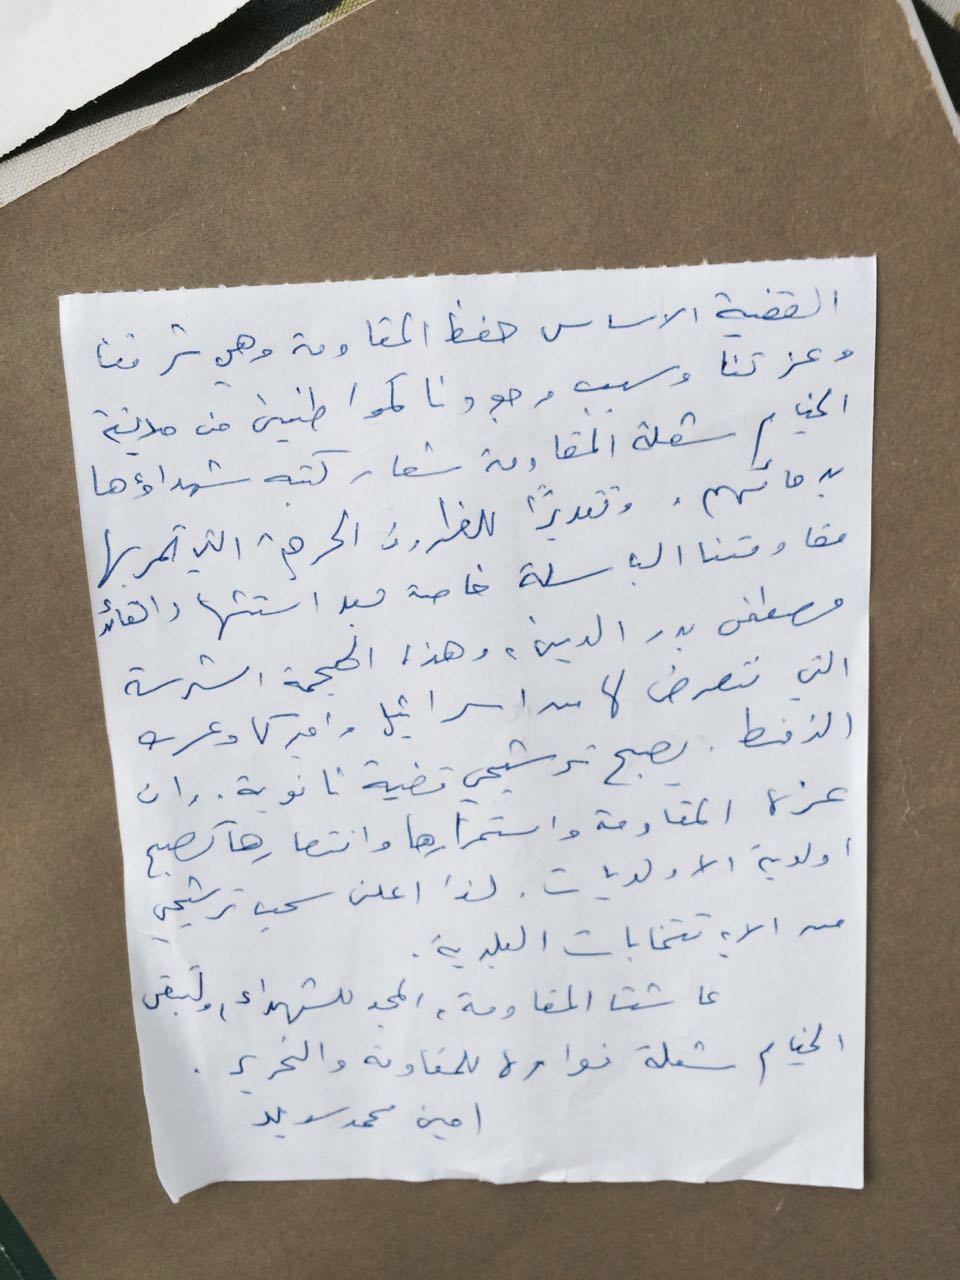 القضية الاساس حفظ المقاومة وهي شرفنا
وعزتنا وسبب وجودنا كمواطنين من مدينة
الخيام شعلة المقاومة شعار كتبه شهداؤها
بدمائهم، وتقديرًا للظروف الحرجة التي تمر بها
مقاومتنا الباسلة خاصة بعد استشهاد القائد
مصطفى بدر الدين، وهذه الهجمة الشرسة
التي نتعرض لها من اسرائيل وامركا وعرب
النفط. يصبح ترشيحي قضية ثانوية. وان
عزة المقاومة واستمرارها وانتصارها تصبح
اولوية الاولويات. لذا اعلن سحب ترشيحي
من الانتخابات البلدية.
عاشت المقاومة، المجد للشهداء، ولتبقى
الخيام شعلة للمقاومة والتحرير.
امين محمد سويد